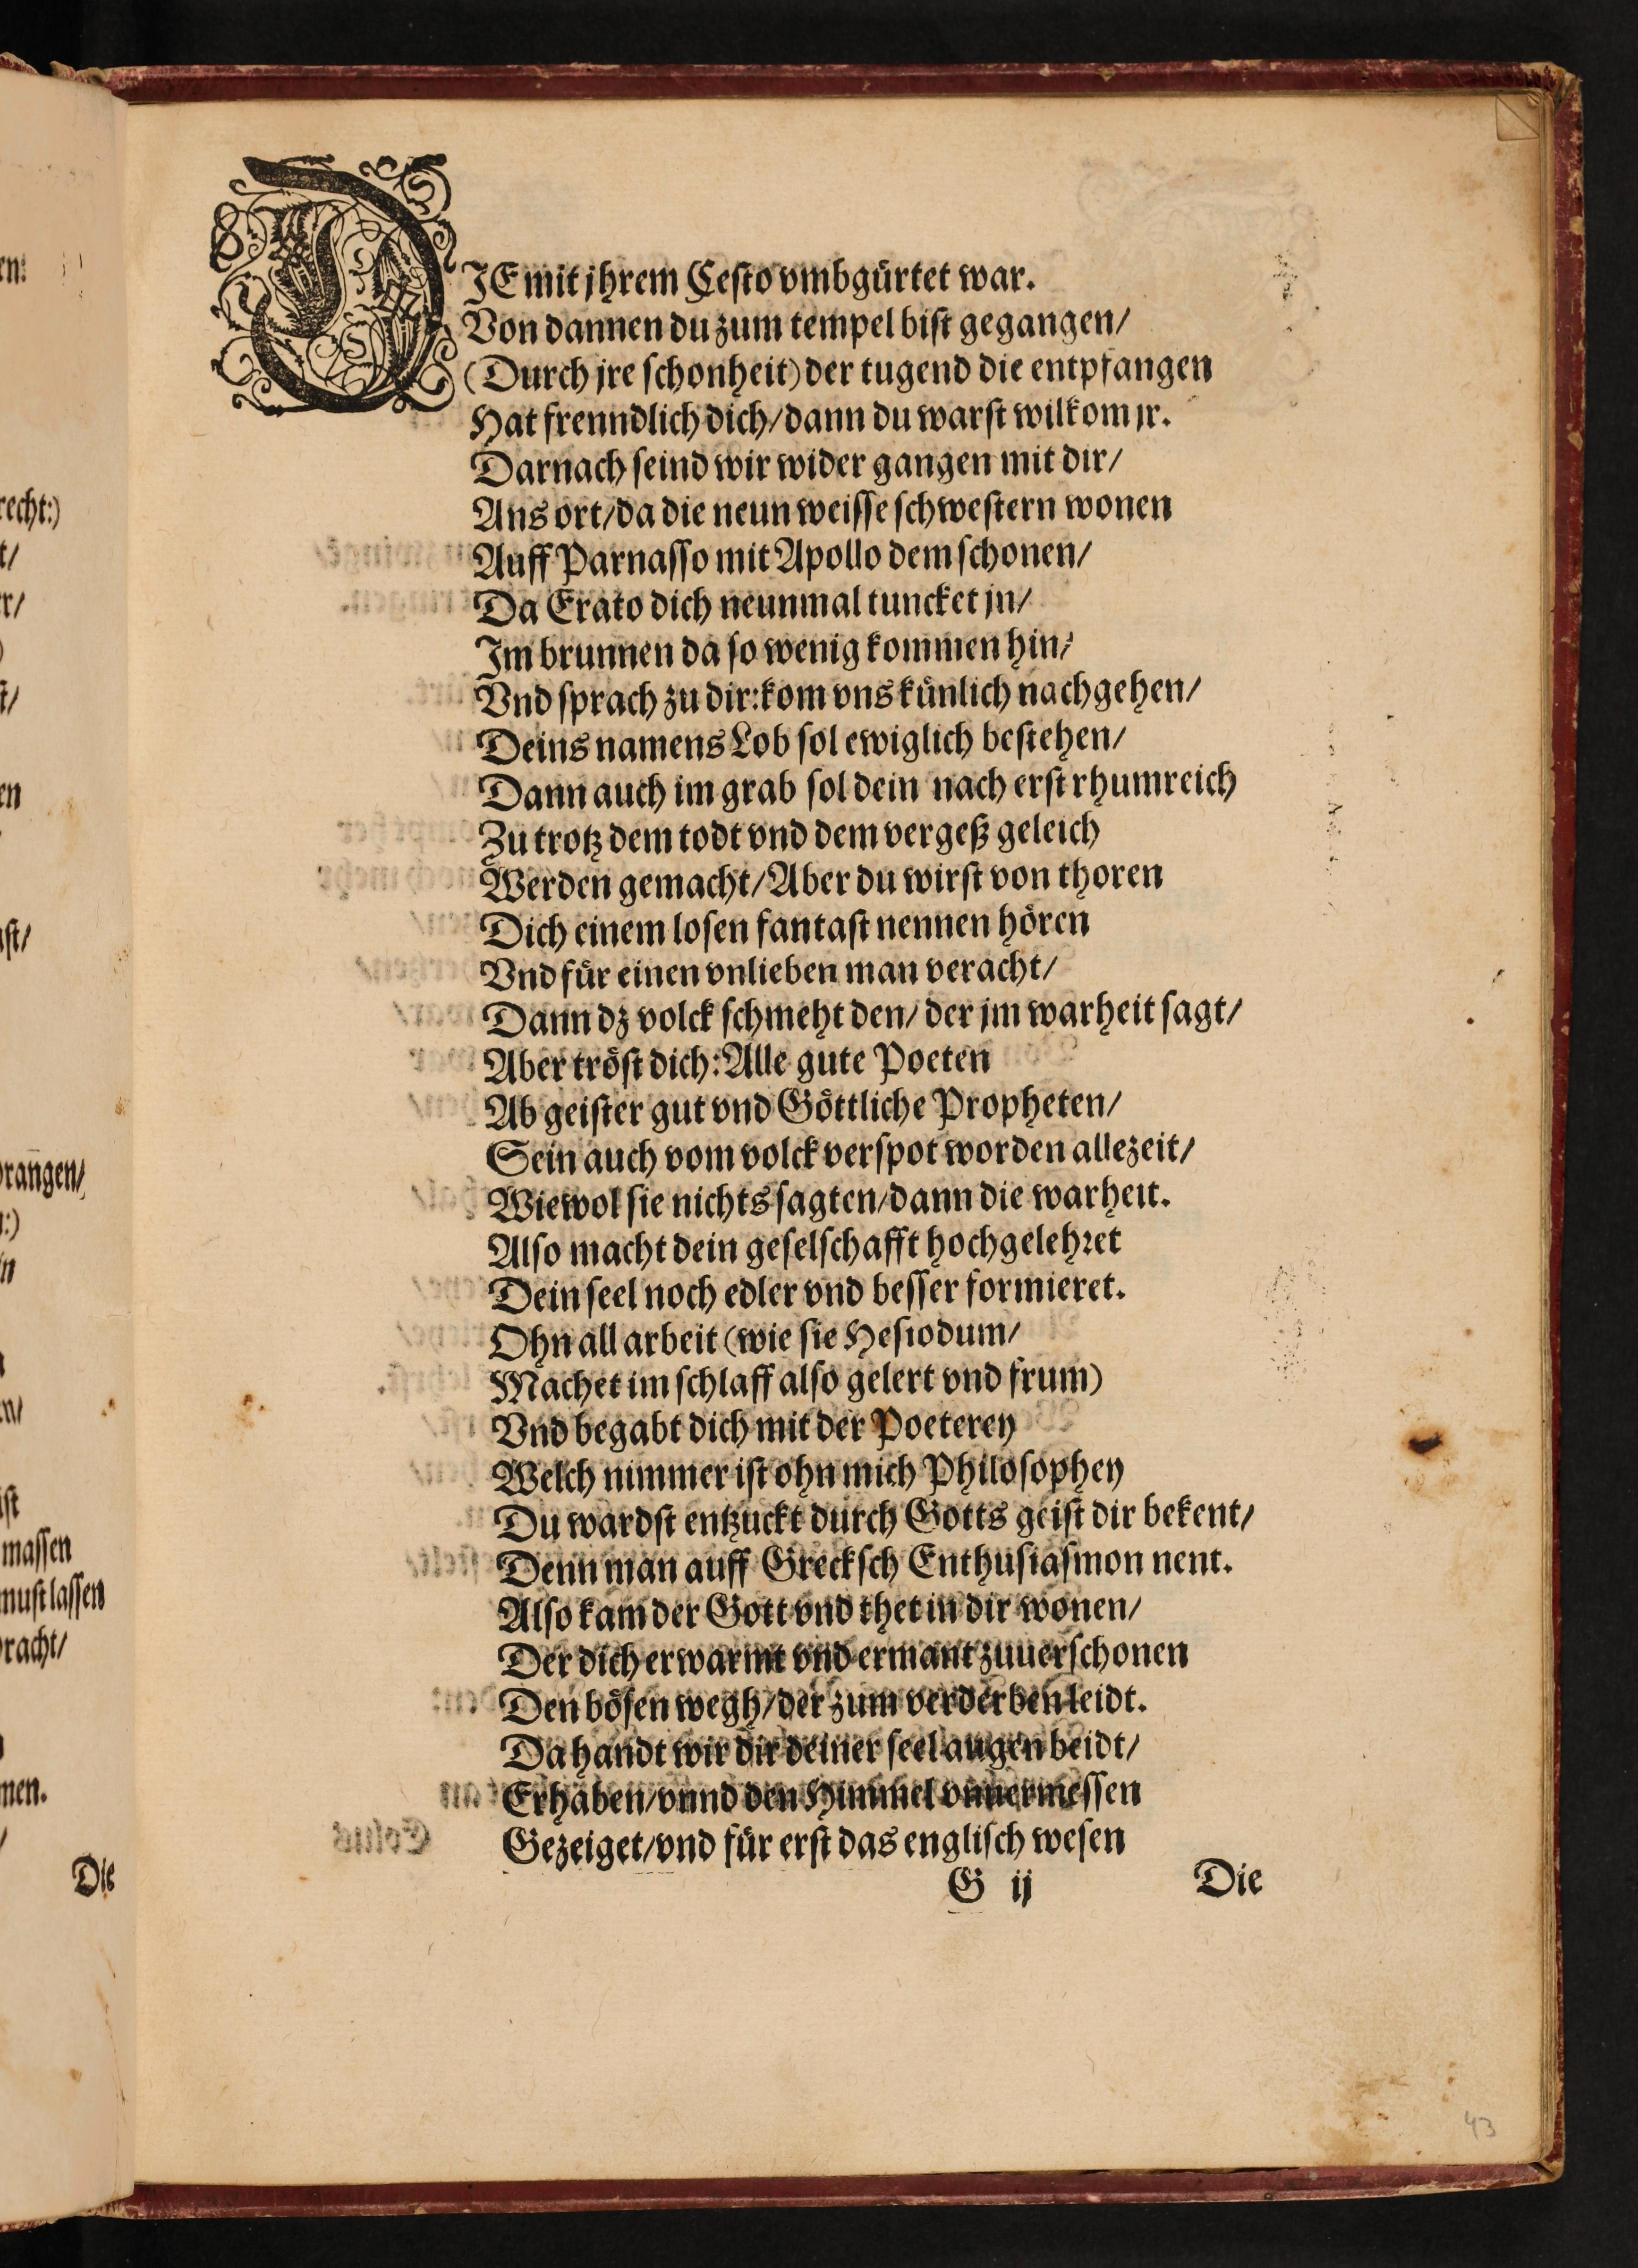 DIE mit jhrem Cesto vmbgürtet war.
Von dannen du zum tempel bist gegangen/
(Durch jre schonheit) der tugend die entpfangen
Hat frenndlich dich/dann du warst wilkom jr.
Darnach seind wir wider gangen mit dir/
Ans ort/da die neun weisse schwestern wonen
Auff Parnasso mit Apollo dem schonen/
Da Erato dich neunmal tuncket jn/
Im brunnen da so wenig kommen hin/
Vnd sprach zu dir:kom vns künlich nachgehen/
Deins namens Lob sol ewiglich bestehen/
Dann auch im grab sol dein nach erst rhumreich
Zu trotz dem todt vnd dem vergeß geleich
Werden gemacht/Aber du wirst von thoren
Dich einem losen fantast nennen hören
Vnd für einen vnlieben man veracht/
Dann dz volck schmeht den/der jm warheit sagt/
Aber tröst dich:Alle gute Poeten
Ab geister gut vnd Göttliche Propheten/
Sein auch vom volck verspot worden allezeit/
Wiewol sie nichts sagten/dann die warheit.
Also macht dein geselschafft hochgelehret
Dein seel noch edler vnd besser formieret.
Ohn all arbeit (wie sie Hesiodum/
Machet im schlaff also gelert vnd frum)
Vnd begabt dich mit der Poeterey
Welch nimmer ist ohn mich Philosophey
Du wardst entzuckt durch Gotts geist dir bekent/
Denn man auff Grecksch Enthusiasmon nent.
Also kam der Gott vnd thet in dir wonen/
Der dich erwarmt vnd ermant zuuerschonen
Den bösen wegh/der zum verderben leidt.
Da handt wir dir deiner seel augen beidt/
Erhaben/vnnd den Himmel vnuermessen
Gezeiget/vnd für erst das englisch wesen
G ij Die
en:
recht:)
t/
r/
)
st/
en
ast/
prangen/
massen
must lassen
bracht/
men.
Die
43